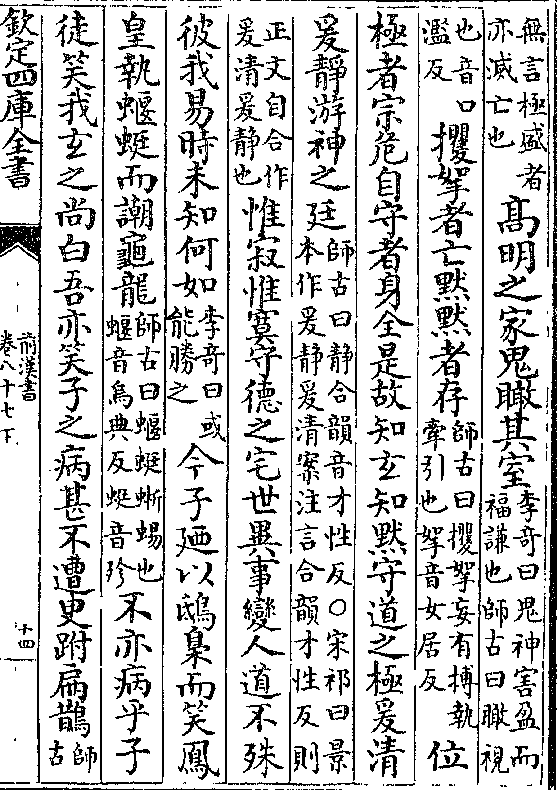 無言極盛者
亦滅亡也
高明之家鬼瞰其室
李奇曰鬼神害盈而
福謙也師古曰瞰視
也音口
濫反
攫挐者亡默默者存
師古曰攫挐妄有搏執
牽引也挐音女居反
位
極者宗危自守者身全是故知玄知默守道之極爰清
爰靜游神之廷
師古曰靜合韻音才性反○宋祁曰景
本作爰靜爰清案注言合韻才性反則
正文自合作
爰清爰靜也
惟寂惟寞守德之宅世異事變人道不殊
彼我易時未知何如
李奇曰或
能勝之
今子廼以鴟梟而笑鳳
皇執蝘蜓而謿龜龍
師古曰蝘蜓蜥蜴也
蝘音烏典反蜓音殄
不亦病乎子
徒笑我玄之尚白吾亦笑子之病甚不遭臾跗扁鵲
師
古
欽定四庫全書
前漢書
卷八十七下
十四